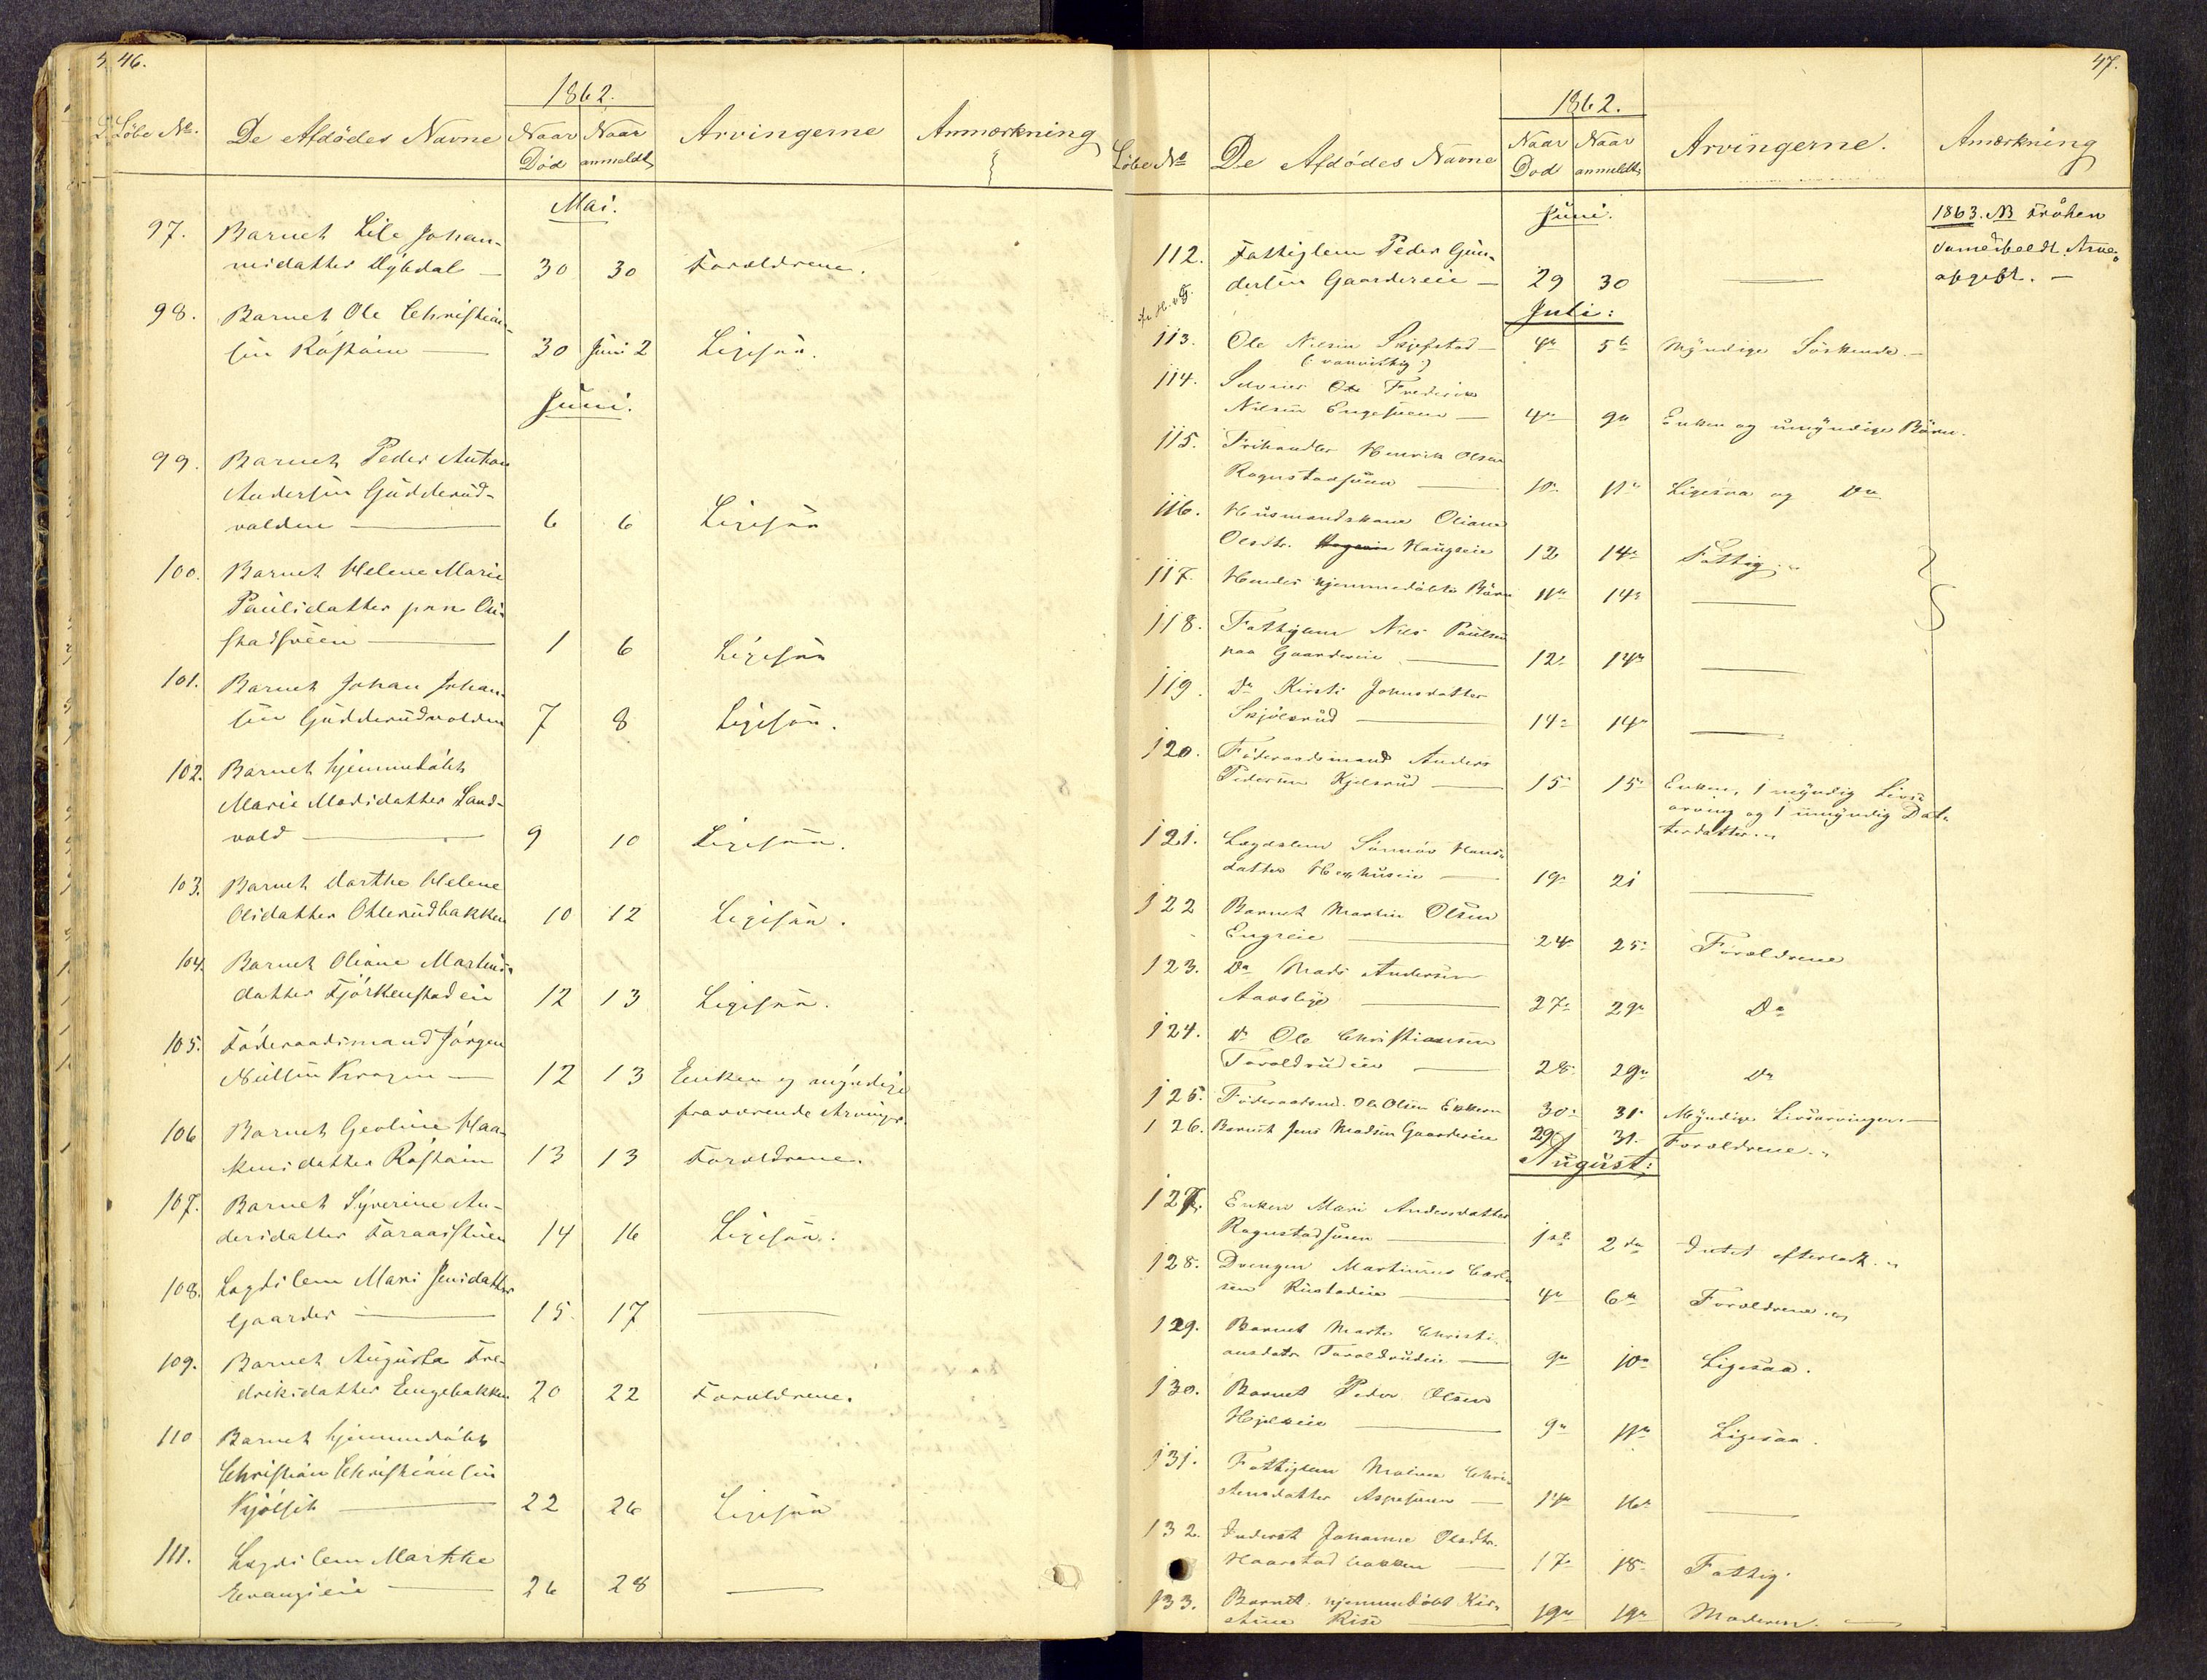 46.
1862.
Löbe No. De Afdödes Navne Naar Död Naar anmeldt Arvingerne Anmærkning
Mai.
97. Barnet Lise Johan-
nisdatter Dybdal — 30 30 Forældrene.
98. Barnet Ole Christian-
sen Röstöien — 30 Juni 2 Ligesaa.
Juni.
99. Barnet Peder Anton
Andersen Gudderud-
volden — 6 6 Ligesaa
100. Barnet Helene Marie
Paulsdatter paa
— 1 6 Ligesaa
101. Barnet Johan Johan-
sen Gudderudvolden 7 8 Ligesaa.
102. Barnet hjemmedöbt
Marie Madsdatter Sand-
vold — 9 10 Ligesaa.
103. Barnet Marthe Helene
Olsdatter Ohlerudbakken 10 12 Ligesaa.
104. Barnet Oliane Martins-
datter Fjörkenstadeie 12 13 Ligesaa.
105. Föderaadsmand Jörgen
Nielsen Kragen — 12 13 Enken og myndige
fraværende Arvinger.
106 Barnet Geoline Haa-
kensdatter Röstöien 13 13 Forældrene.
107. Barnet Syverine An-
dersdatter 14 16 Ligesaa.
108. Lægdslem Mari Jensdatter
Gaarder — 15 17 —
109. Barnet Augusta Fre-
driksdatter Engebakken 20 22 Forældrene.
110 Barnet hjemmedöbt
Christian Christiansen
— 22 26 Ligesaa
111. Lægdslem Marthe
— 26 28 —
47.
1862.
Löbe No De Afdödes Navne Naar Död Naar anmeldt Arvingerne. Anmærkning
Juni.
1863. NB Fröken
112. Fattiglem Peder Gun-
dersen Gaardereie — 29 30 —
Juli:
113. Ole Nielsen Skjefstad — 4de 5te Myndige Söskende. —
(: vanvittig :)
114.
Nielsen Engesveen — 4de 9de Enken og umyndige Börn.
115. Frihandler Henrik Olsen
Rognstadsveen — 10. 11te Ligesaa og Do
116. Husmandskone Oliane
Olsdtr. Haugseie 12 14de Fattig.
117. Hendes hjemmedöbte Barn 11te 14de —
118. Fattiglem Niels Paulsen
paa Gaardereie — 12te 14de —
119. Do Kirsti Johnsdatter
Skjölsrud — 14de 14de —
120. Föderaadsmand Anders
Pedersen Kjelsrud — 15de 15de Enken, 1 myndig Livs-
arving og 1 umyndig Dat-
terdatter.
121. Lægdslem Sönnöv Hans-
datter — 19de 21 —
122 Barnet Martin Olsen
Engeeie — 24de 25de Forældrene
123. Do Mads Andersen
Aarslye — 27de 29de Do
124. Do Ole Christiansen
Taraldrudeie — 28de 29de Do
125. Föderaadsmd. Ole Olsen Ekkern 30te 31te Myndige Livsarvinger. —
126. Barnet Jens Madsen Gaardereie 29de 31. Forældrene.
August:
127. Enken Mari Andersdatter
Rognstadsveen — 1ste 2den Intet efterladt.
128. Drengen Martinus Carl-
sen Rustadeie — 4de 6te Forældrene.
129. Barnet Marte Christi-
ansdatr. Taraldrudeie — 9de 10de Ligesaa.
130. Barnet Peder Olsen
— 9de 11te Ligesaa.
131. Fattiglem Malena Chri-
stensdatter Aspesveen — 14de 16de —
132. Inderst Johanne Olsdtr.
Haarstadbakken — 17de 18de Fattig.
133. Barnet, hjemmedöbt Kir-
stine Rise — 19de 19de Moderen. —